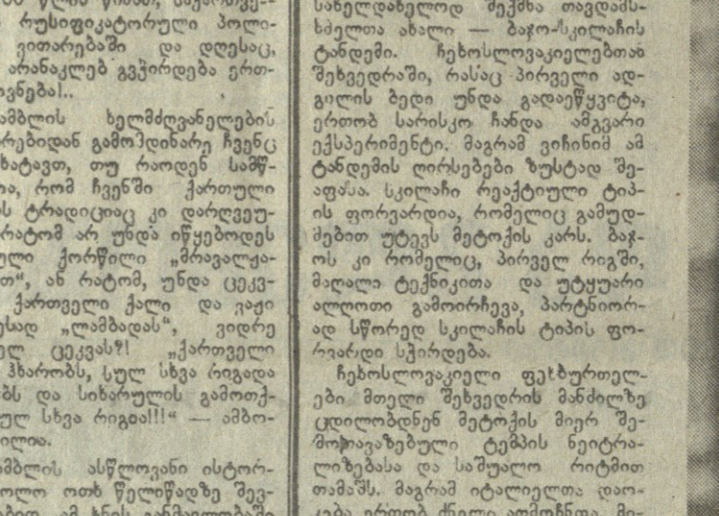 რუსიფიკატორული პოლი-
ვითარებაში და დღესაც,
არანაკლებ გვჭირდება ერთ-
ხელმძღვანელების
გამომდინარე ჩვენც
თუ რაოდენ სამწ-
რომ ჩვენში ქართული
ტრადიციაც კი დარღვეუ-
რატომ არ უნდა იწყებოდეს
ქორწილი „მრავალჟა-
ან რატომ, უნდა ცეკვ-
ქართველი ქალი და ვაჟი
„ლამბადას“, ვიდრე
ცეკვას?! „ქართველი
ჰხარობს, სულ სხვა რიგადა
და სიხარულის გამოთქ-
სხვა რიგია!!!“ — ამბო-
ასწლოვანი ისტორ-
ოთხ წელიწადზე შევ-
სახელდახელოდ შექმნა თავდამს-
ხმელთა ახალი — ბაჯო-სკილაჩის
ტანდემი. ჩეხოსლოვაკიელებთან
შეხვედრაში, რასაც პირველი ად-
გილის ბედი უნდა გადაეწყვიტა,
ერთობ სარისკო ჩანდა ამგვარი
ექსპერიმენტი. მაგრამ ვიჩინიმ ამ
ტანდემის ღირსებები ზუსტად შე-
აფასა. სკილაჩი რეაქტიული ტიპ-
ის ფორვარდია, რომელიც გამუდ-
მებით უტევს მეტოქის კარს. ბაჯ-
ოს კი რომელიც, პირველ რიგში,
მაღალი ტექნიკითა და უტყუარი
ალღოთი გამოირჩევა, პარტნიორ-
ად სწორედ სკილაჩის ტიპის ფო-
რვარდი სჭირდება.
ჩეხოსლოვაკიელი ფეხბურთელ-
ები მთელი შეხვედრის მანძილზე
ცდილობდნენ მეტოქის მიერ შე-
მოთავაზებული ტემპის ნეიტრა-
ლიზებასა და საშუალო რიტმით
თამაშს. მაგრამ იტალიელთა დაო-